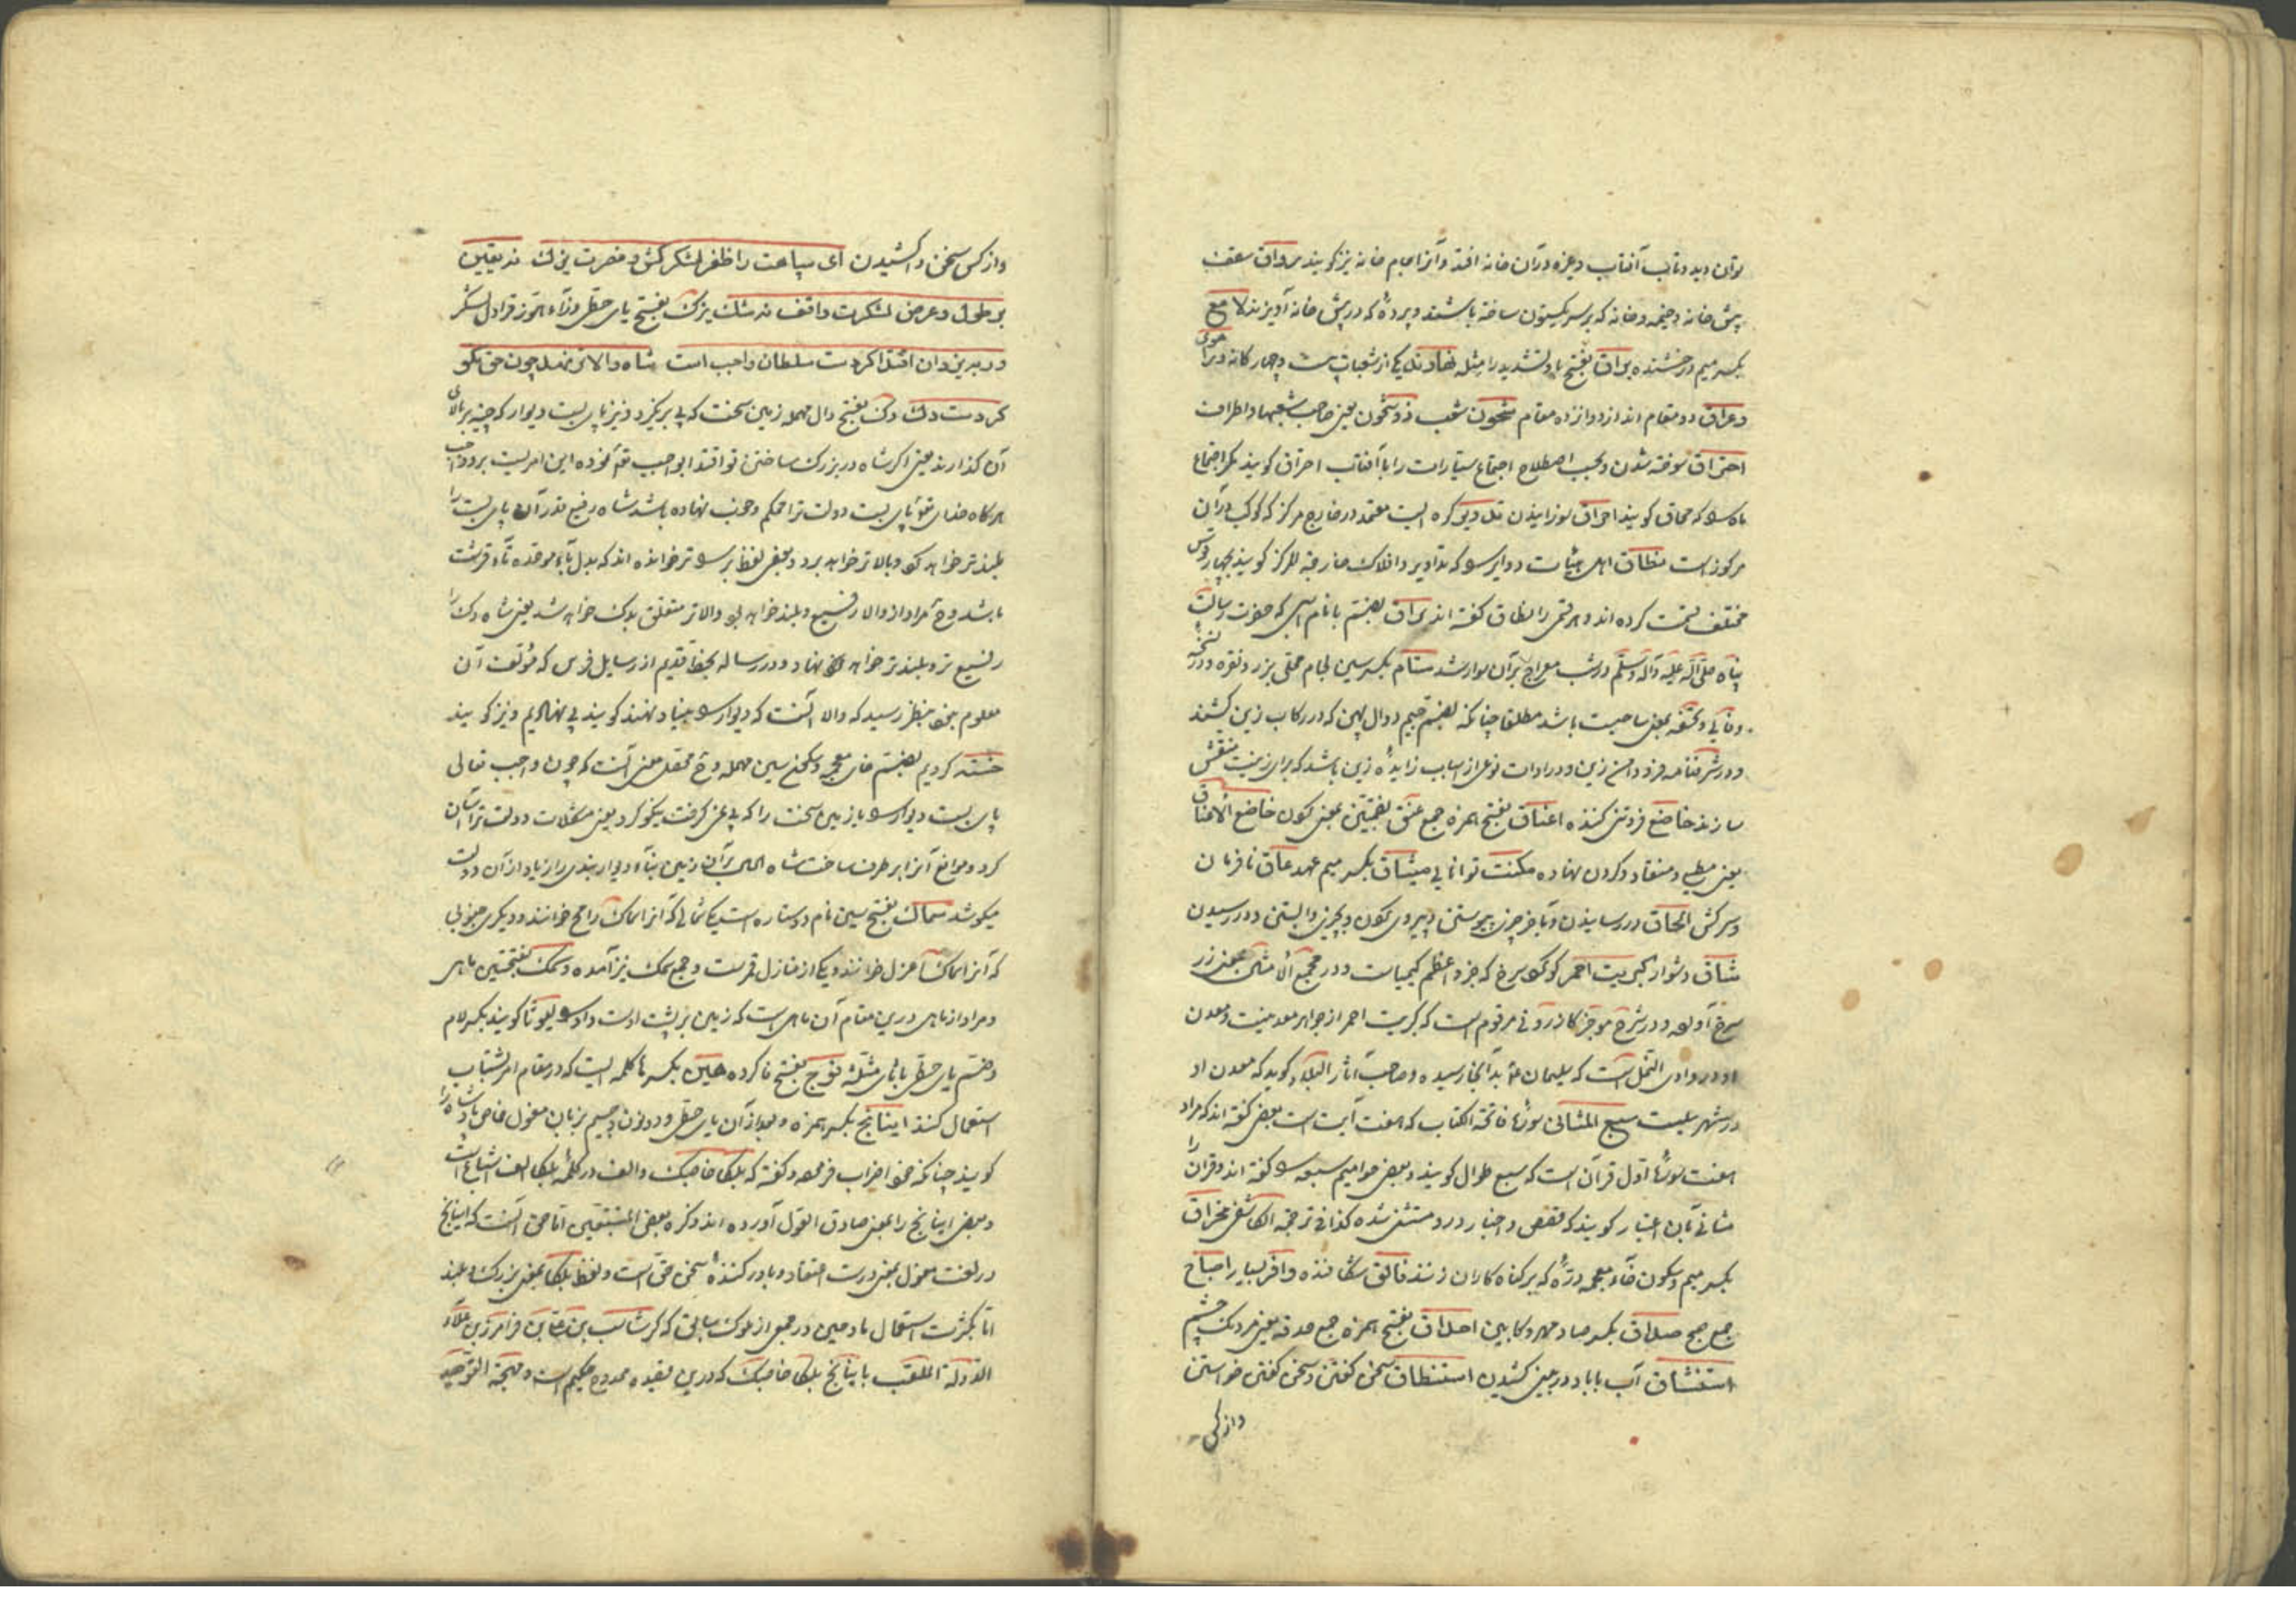 توان دید و تاب آفتاب و غیره در آن خانه افتد و آنرا جام خانه نیز گویند رواق سقف
پیش خانه و خیمه و خانه که بر سر یکستون ساخته باشند و پرده که در پیش خانه آویزند لامع
بکسر میم درخشنده براق بفتح با و تشدید را مثله نهاوند یکی از شعبات بیست و چهار کانه
و عراق دو مقام اند از دوازده مقام شجون شعب ذو شجون یعنی صاحب شعبها و اطراف
احتراق سوخته شدن و بحسب اصطلاح اجتماع سیارات را با آفتاب احتراق گویند مکر اجتماع
ماه که محاق گویند احراق سوزانیدن تدویر کره ایست معتمد در خارج مرکز که کوکب در آن
مرکوز است نطاق اهل هیئات دوایر که تداویر و افلاک خارجة المرکز گویند بچهار قوس
مختلف قسمت کرده اند و هر قسمی را نطاق گفته اند براق بضم با نام اسپی که حضرت رسالت
پناه صلی الله علیه و آله و سلم در شب معراج بر آن سوار شد ستام بکسر سین لجام محلی بزر و نقره و در نسخه
وفایی و تحفه بمعنی ساخت باشد مطلقا چنانکه بضم جیم دوال پهن که در رکاب زین کشند
و در شرفنامه فرود دامن زین و در ادات نوعی از اسباب زایده زین باشد که برای زینت منقش
سازند خاضع فروتنی کننده اعناق بفتح همزه جمع عنق بضمتین بمعنی کردن خاضع الاعناق
یعنی مطیع و منقاد و کردن نهاده مکنت توانایی میثاق بکسر میم عهد عاق نافرمان
و سرکش الحاق در رسانیدن و با خر چیزی پیوستن و پیروی کردن و بچیزی وابستن و در رسیدن
شاق دشوار کبریت احمر گوگرد سرخ که جزو اعظم کیمیاست و در مجمع الامثال بمعنی زر
سرخ آورده و در شرح موجز کازرونی مرقوم است که کبریت احمر از جواهر معدنیست و معدن
او در وادی النمل است که سلیمان بدانجا رسیده و صاحب آثار البلاد گوید که معدن او
در شهر سبع المثانی سوره فاتحة الکتاب که هفت آیت است بعضی گفته اند که مراد
هفت سوره اول قرآن است که سبع طوال گویند و بعضی حوامیم سبعه گفته اند و قرآن را
مثانی بآن اعتبار گویند که قصص و اخبار درو مثنی شده کذا فی ترجمة الکاشفی مخراق
بکسر میم و سکون خاء معجمه دره که بر گناه کاران زنند فالق شکافنده و آفریننده اصباح
جمع صبح صداق بکسر صاد مهر و کابین احداق بفتح همزه جمع حدقه یعنی مردمک چشم
استنشاق آب یا باد در بینی کشیدن استنطاق سخن گفتن و سخن گفتن خواستن
و از کس
و از کس سخن واکشیدن ای سپاهت را ظفر لشکر کش و نصرت یزک نه یقین
بر طول و عرض لشکرت واقف نه شک یزک بفتح یای حطی و زاء هوز قراول لشکر
در برین دان اقتدا کردست سلطان واجب است شاه والا نهد چون حق نکو
کردست دک دک بفتح دال مهمله زمین سخت که پی بر نگیرد و نیز پای بست دیوار که چینه بر بالای
آن گذارند یعنی اگر شاه در بزرگ ساختن تو اقتدا بواجب تعالی نموده این امریست برو واجب
هر گاه خدای تعالی پای بست دولت ترا محکم و خوب نهاده باشد شاه رفیع قدر آن پای بست را
بلندتر خواهد کرد و بالاتر خواهد برد و بعضی لفظ بر تر خوانده اند که بدل باء موحده تاء قرشت
باشد و ح مراد از والا رفیع و بلند خواهد بود و الا تر متعلق بدک خواهد شد یعنی شاه دک را
رفیع تر و بلندتر خواهد نهاد و در رساله بخط قدیم از رسایل فرس که مؤلف آن
معلوم نبود بنظر رسید که والا آنست که دیوار بنیاد نهند گویند پی نهادیم و نیز گویند
خسته کردیم بضم خای معجمه و سکون سین مهمله و ح محصل معنی آنست که چون واجب تعالی
پای بست دیوار یا زمین سخت را که پی نمی گرفت نیکو کرد یعنی مشکلات دولت ترا آسان
کرد و موانع آنرا بر طرف ساخت شاه الحال بر آن زمین بناء دیوار بندی را زیاد از آن دولت
میکوشد سماک بفتح سین نام دو ستاره است یکی شمالی که آنرا سماک رامح خوانند و دیگری جنوبی
که آنرا سماک اعزل خوانند و یکی از منازل قمرست و جمع سمک نیز آمده و سمک بفتحتین ماهی
و مراد از ماهی درین مقام آن ماهی است که زمین بر پشت اوست و او لیوثا گویند بکسر لام
و ضم یای حطی با ثای مثلثه فوج بفتح فا کرده هین بکسر ها کلمه ایست که در مقام امر بشتاب
استعمال کنند اینانج بکسر همزه و بعد از آن یای حطی و دو نون و جیم بزبان مغول خاص پادشاه را
گویند چنانکه خود اضراب فرموده و گفته که بلکا خاصبک و الف در کلمه بلکا الف اشباع است
و بعضی اینانج را بمعنی صادق القول آورده اند و ذکره بعض المتتبعین اما حق آنست که اینانج
در لغت مغول بمعنی درست اعتقاد و باور کننده سخن حق است و لفظ بلکا بمعنی بزرگ و بلند
اما بکثرت استعمال مادحین در جمعی از ملوک سابق که گرشاسب بن علی بن فرامرز بن علاء
الدوله الملقب باینانج بلکا خاصبک که درین قصیده ممدوح حکیم است و بهجة التوحید